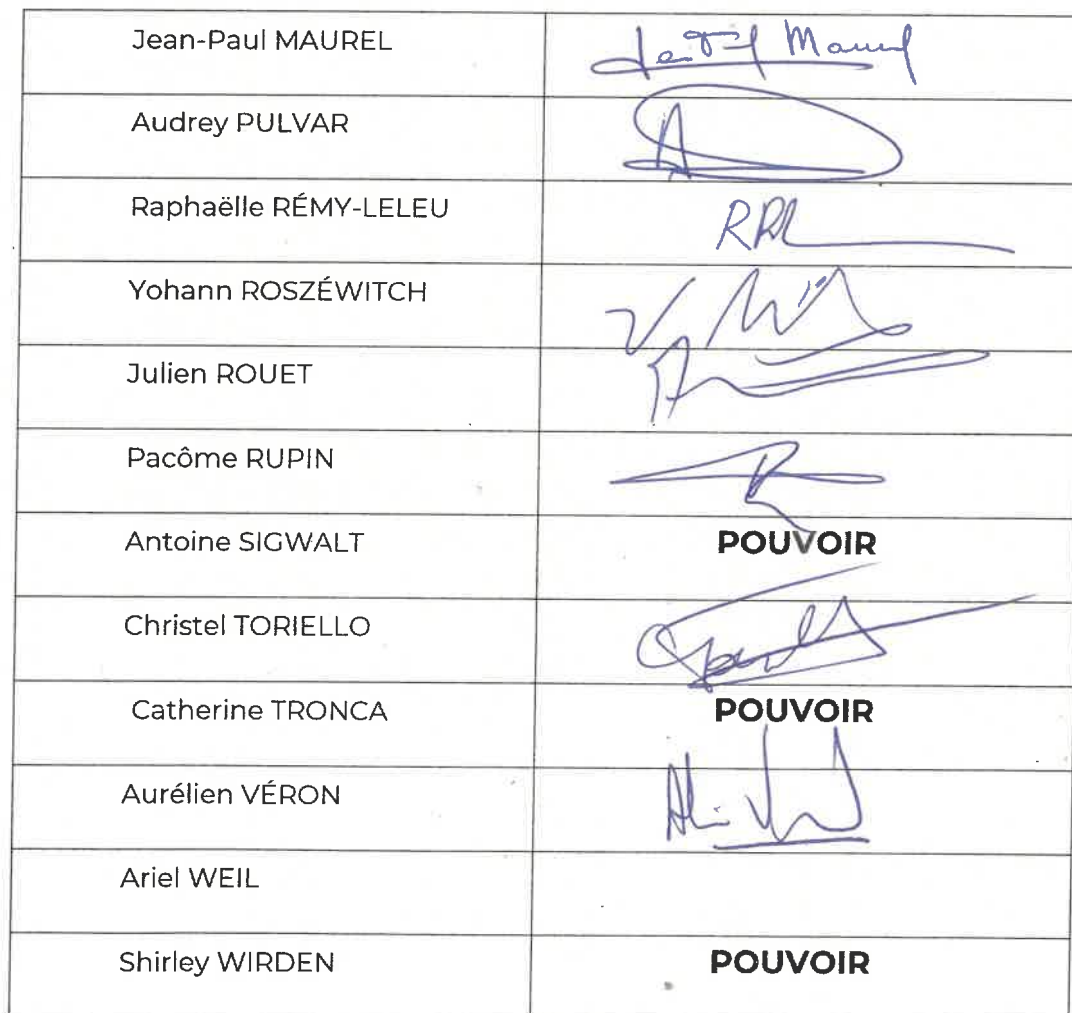 Jean-Paul MAUREL
Audrey PULVAR
Raphaëlle RÉMY-LELEU RRL
Yohann ROSZÉWITCH
Julien ROUET
Pacôme RUPIN
Antoine SIGWALT POUVOIR
Christel TORIELLO
Catherine TRONCA POUVOIR
Aurélien VÉRON
Ariel WEIL
Shirley WIRDEN POUVOIR